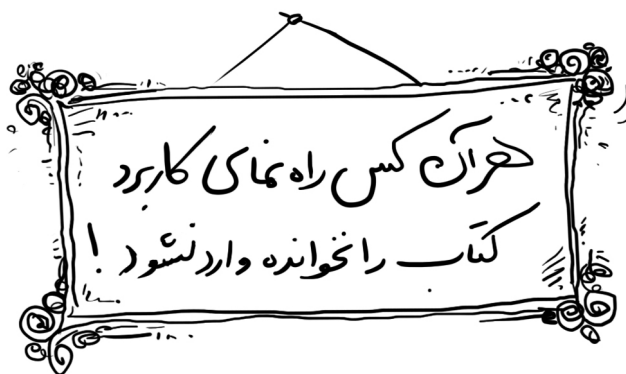 هر آن کس راه نمای کاربرد
کتاب را نخوانده وارد نشود !